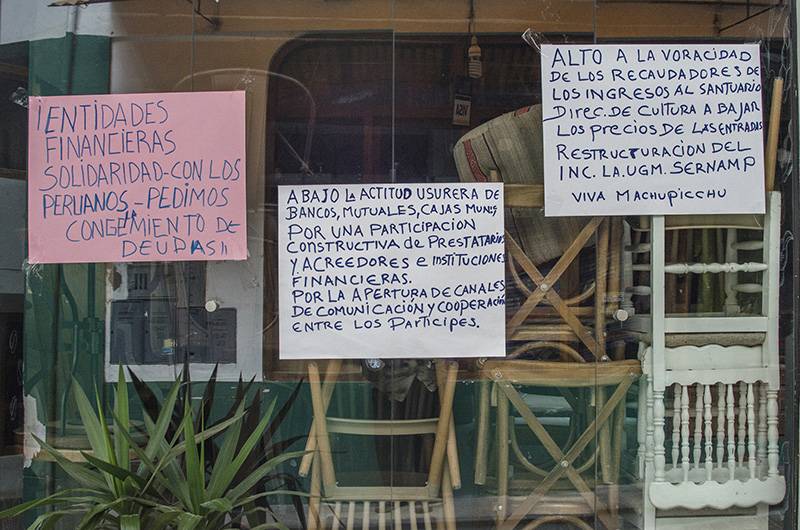 ¡ENTIDADES
FINANCIERAS
SOLIDARIDAD-CON LOS
PERUANOS-PEDIMOS
CONGEMIENTO DE
DEUDAS!!
ABAJO LA ACTITUD USURERA DE
BANCOS, MUTUALES, CAJAS MUNIS
POR UNA PARTICIPACION
CONSTRUCTIVA DE PRESTATARIOS
Y ACREEDORES E INSTITUCIONES
FINANCIERAS.
POR LA APERTURA DE CANALES
DE COMUNICACIÓN Y COOPERACIÓN
ENTRE LOS PARTICIPES.
ALTO A LA VORACIDAD
DE LOS RECAUDADORES DE
LOS INGRESOS AL SANTUARIO
DIREC. DE CULTURA A BAJAR
LOS PRECIOS DE LAS ENTRADAS
RESTRUCTURACION DEL
INC. LA. UGM. SERNAMP
VIVA MACHUPICCHU